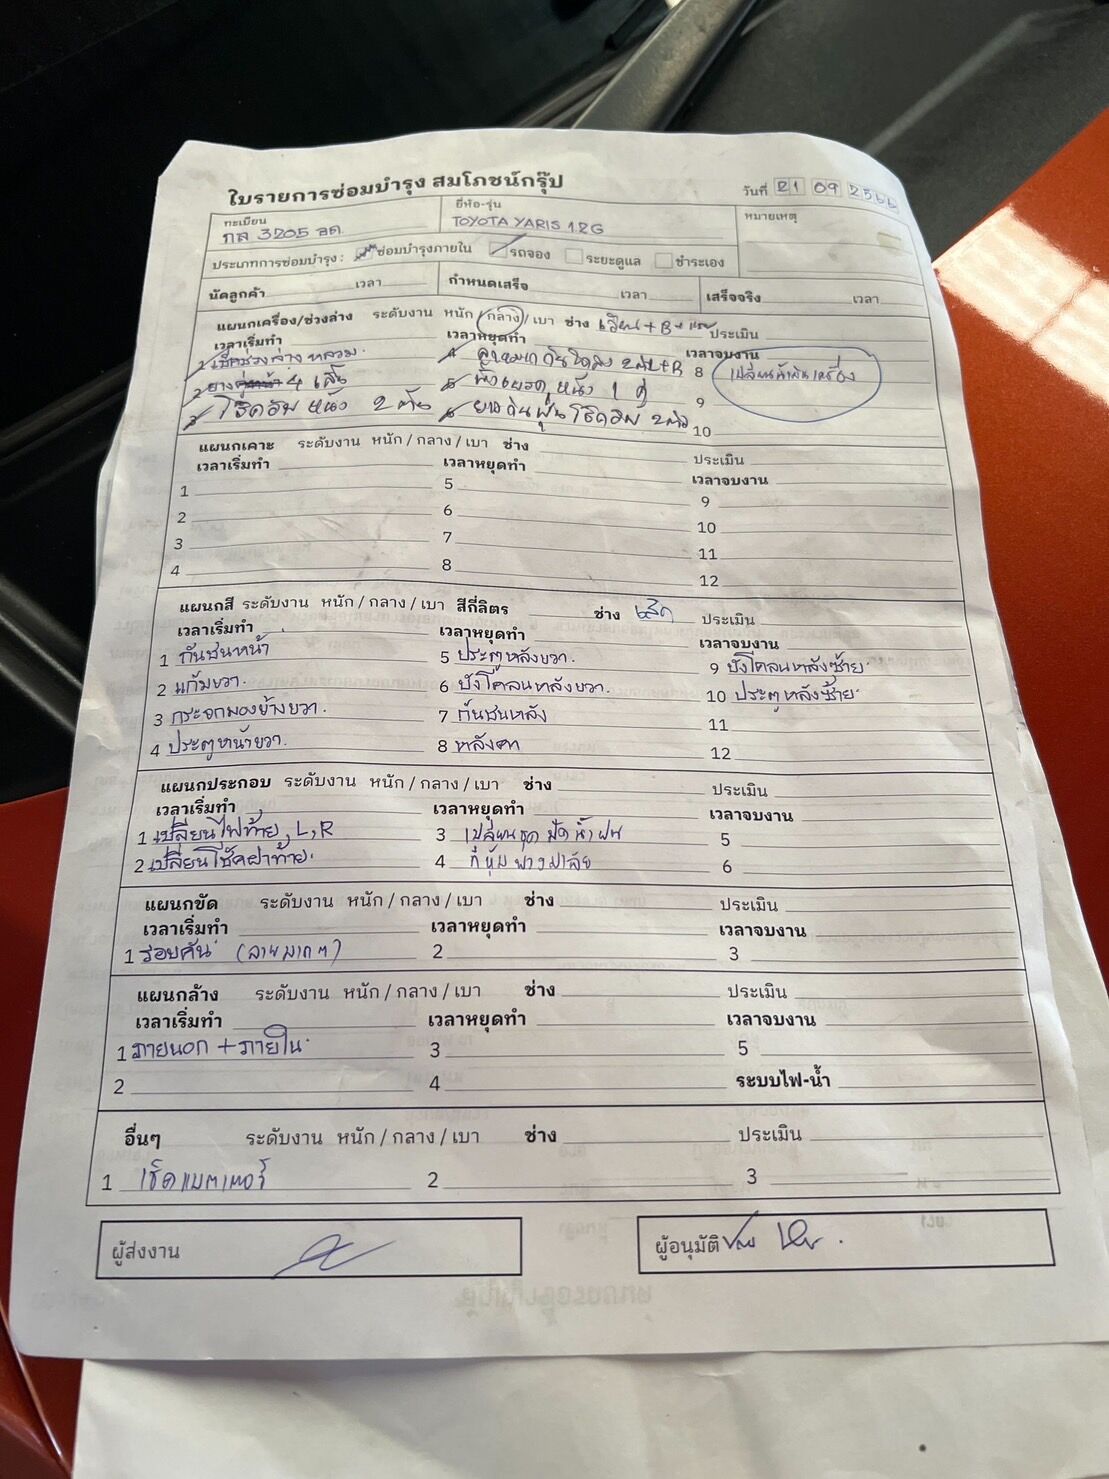 ใบรายการซ่อมบำรุง สมโภชน์กรุ๊ป
วันที่ 21 09 2566
ทะเบียน กล 3205
ยี่ห้อ-รุ่น TOYOTA YARIS 1.2G
หมายเหตุ
ประเภทการซ่อมบำรุง : ซ่อมบำรุงภายใน รถจอง ระยะดูแล ชำระเอง
นัดลูกค้า เวลา กำหนดเสร็จ เวลา เสร็จจริง เวลา
แผนกเครื่อง/ช่วงล่าง ระดับงาน หนัก / กลาง / เบา ช่าง ประเมิน
เวลาเริ่มทำ เวลาหยุดทำ เวลาจบงาน
1 เช็คช่วงล่าง หลวม 4 ลูกหมากกันโคลง 2 8 เปลี่ยนน้ำมันเครื่อง
2 ยาง 4 เส้น 5 หลัง 1 คู่ 9
3 โช๊คอัพ หลัง 2 ต้น 6 ยางกันฝุ่นโช๊คอัพ 2 ตัว 10
แผนกเคาะ ระดับงาน หนัก / กลาง / เบา ช่าง ประเมิน
เวลาเริ่มทำ เวลาหยุดทำ เวลาจบงาน
1 5 9
2 6 10
3 7 11
4 8 12
แผนกสี ระดับงาน หนัก / กลาง / เบา สีกี่ลิตร ช่าง ประเมิน
เวลาเริ่มทำ เวลาหยุดทำ เวลาจบงาน
1 กันชนหน้า 5 ประตูหลังขวา. 9 บังโคลนหลังซ้าย.
2 แก้มขวา. 6 บังโคลนหลังขวา. 10 ประตูหลังซ้าย.
3 กระจกมองข้างขวา. 7 กันชนหลัง 11
4 ประตูหน้าขวา. 8 หลังคา 12
แผนกประกอบ ระดับงาน หนัก / กลาง / เบา ช่าง ประเมิน
เวลาเริ่มทำ เวลาหยุดทำ เวลาจบงาน
1 เปลี่ยนไฟท้าย, L, R 3 เปลี่ยนชุดปัดน้ำฝน 5
2 เปลี่ยนโช๊คฝาท้าย. 4 ที่หุ้มพวงมาลัย 6
แผนกขัด ระดับงาน หนัก / กลาง / เบา ช่าง ประเมิน
เวลาเริ่มทำ เวลาหยุดทำ เวลาจบงาน
1 รอบคัน (ลายมาก ๆ) 2 3
แผนกล้าง ระดับงาน หนัก / กลาง / เบา ช่าง ประเมิน
เวลาเริ่มทำ เวลาหยุดทำ เวลาจบงาน
1 ภายนอก + ภายใน 3 5
2 4 ระบบไฟ-น้ำ
อื่นๆ ระดับงาน หนัก / กลาง / เบา ช่าง ประเมิน
1 เช็คแบตเตอรี่ 2 3
ผู้ส่งงาน ผู้อนุมัติ